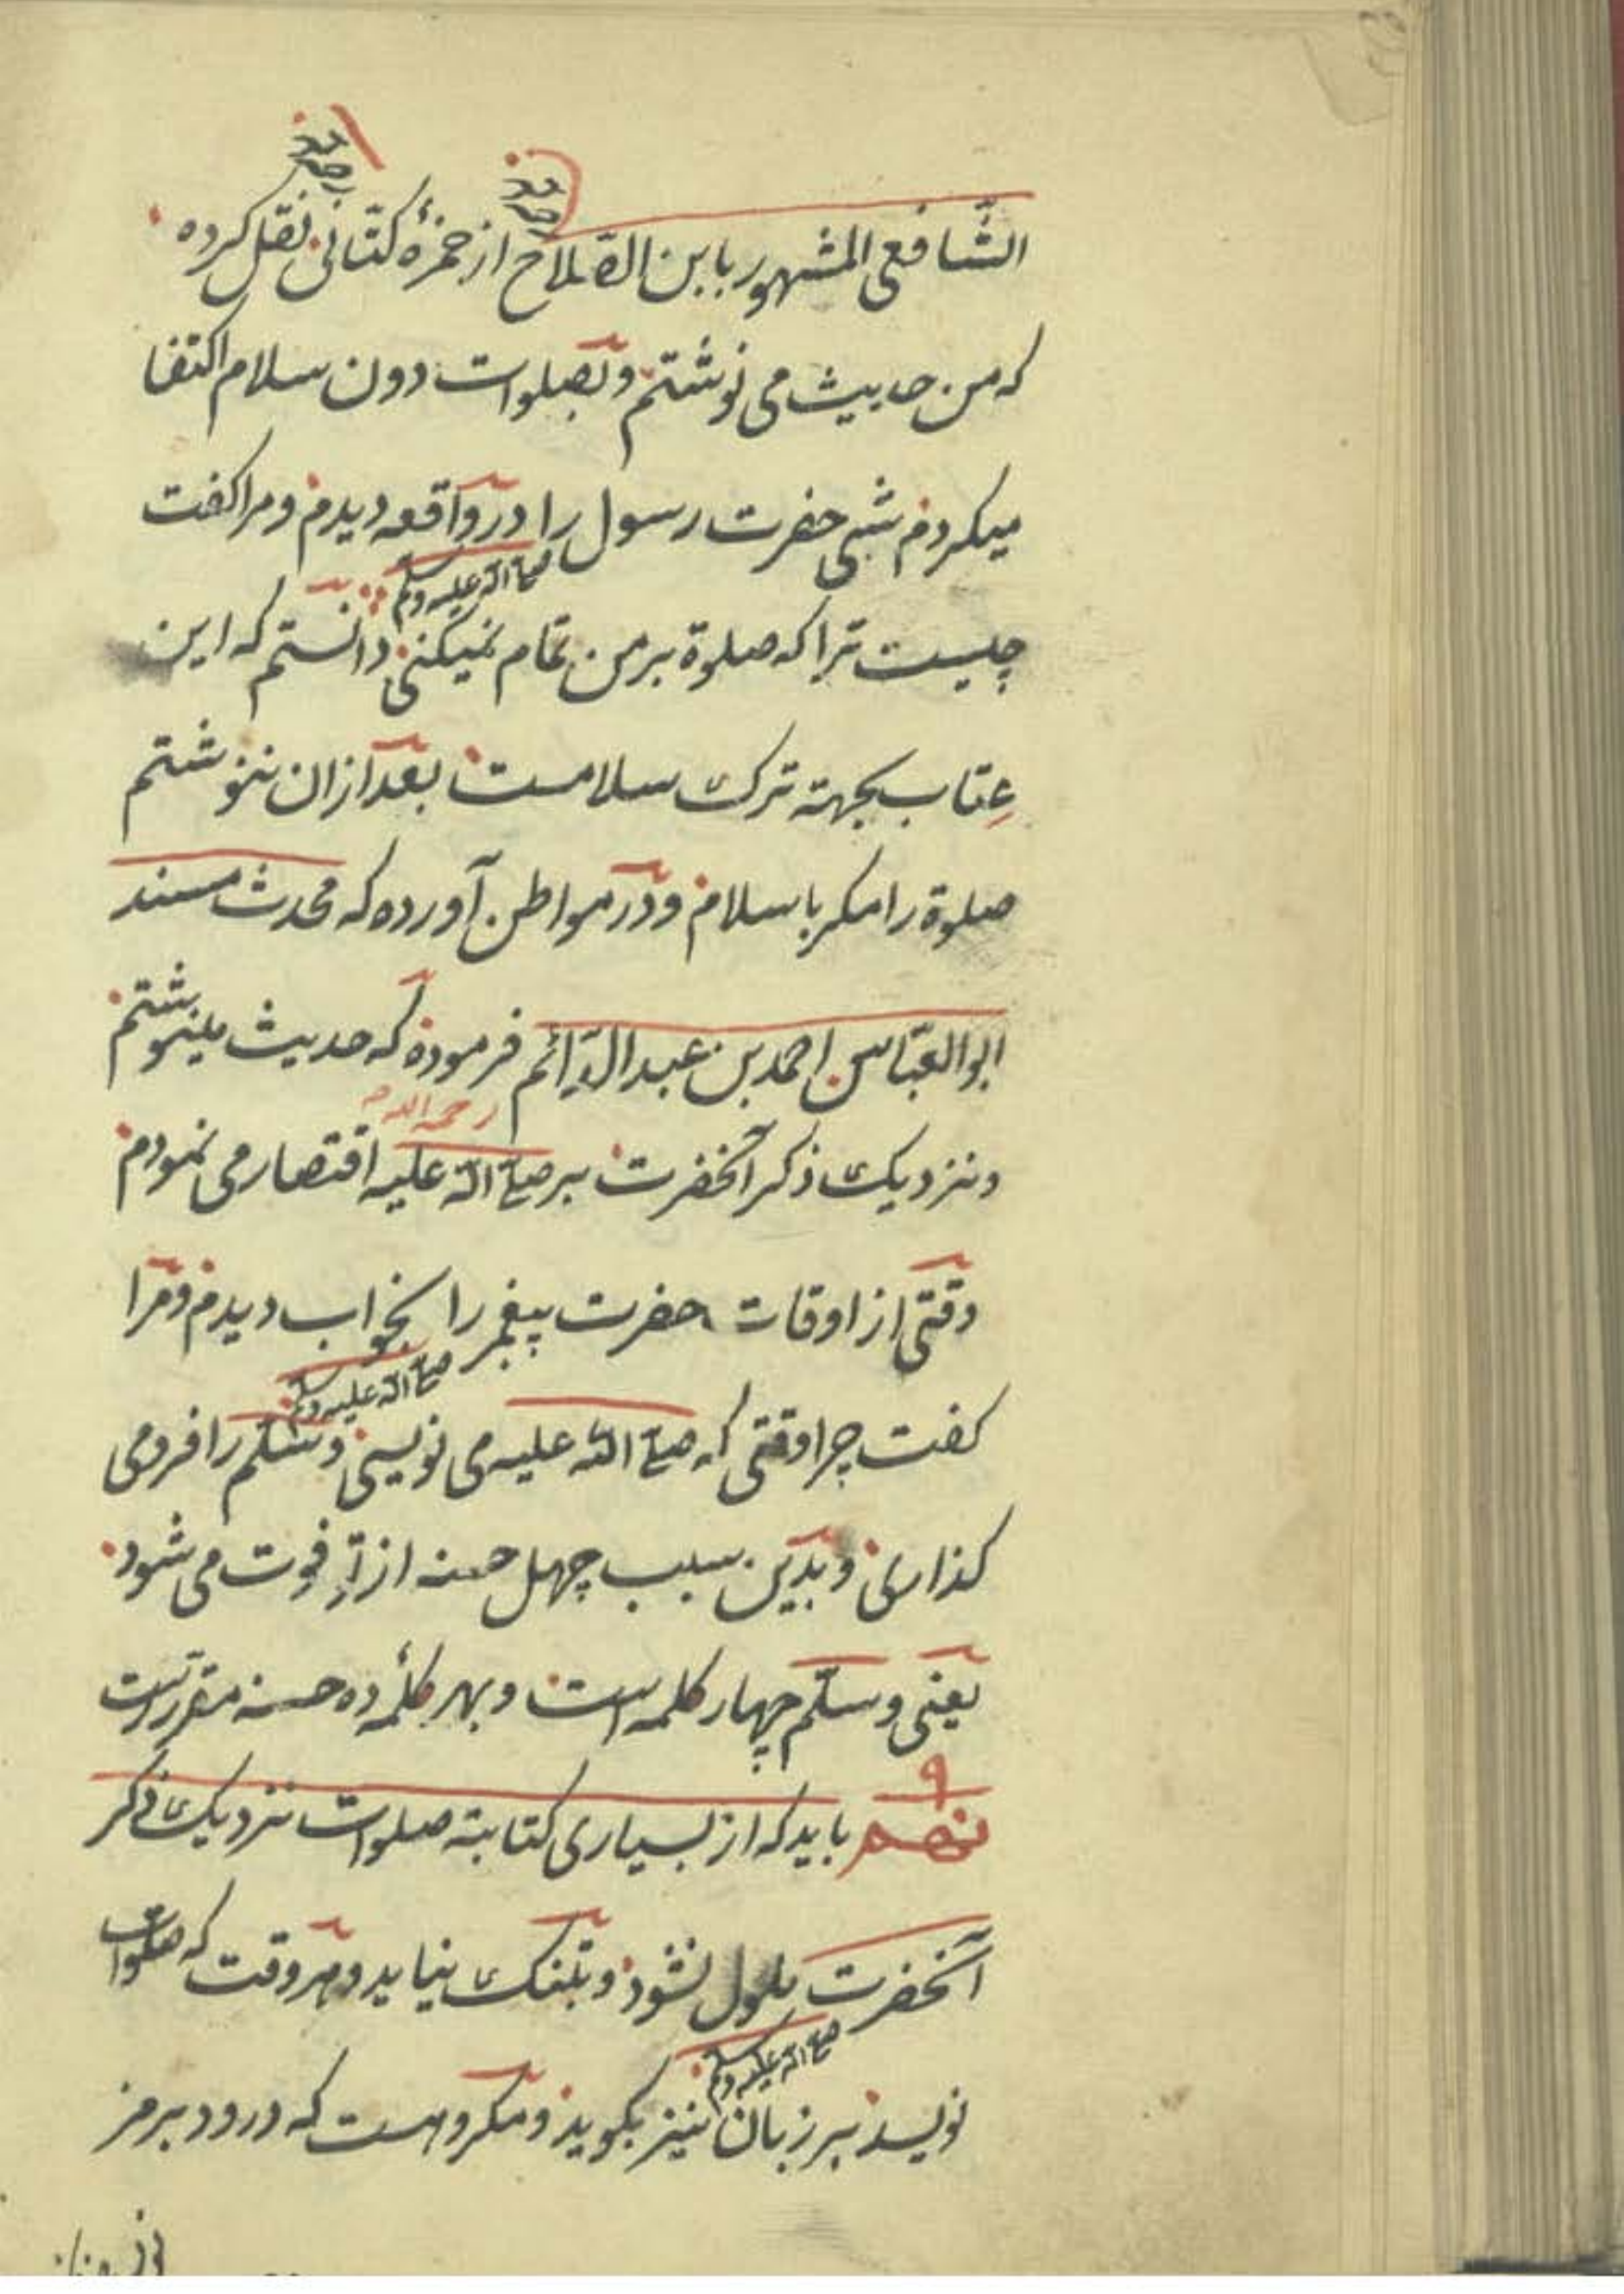 الشّافعی المشهور بابن الصّلاح از حمزهٔ کتّانی نقل کرده
که من حدیث می نوشتم و بصلوات دون سلام اکتفا
میکردم شبی حضرت رسول را در واقعه دیدم و مرا کفت
صلی الله علیه وسلم
چیست ترا که صلوة بر من تمام نمیکنی دانستم که این
عِتاب بجهته ترک سلامست بعد ازان ننوشتم
صلوة را مکر با سلام و در مواطن آورده که محدث مسند
ابوالعبّاس احمد بن عبدالدّائم فرموده که حدیث مینوشتم
رحمه الله
و نزدیک ذکر آنحضرت بر صلی الله علیه اقتصار می نمودم
وقتی از اوقات حضرت پیغمبر را بخواب دیدم و مرا
صلی الله علیه وسلم
کفت چرا وقتی که صلی الله علیه می نویسی و سلّم را فرو می
کذاری و بدین سبب چهل حسنه از تو فوت می شود
یعنی وسلّم چهار کلمه است و بهر کلمهٔ ده حسنه مقررست
۹
نهم باید که از بسیاری کتابته صلوات نزدیک ذکر
آنحضرت ملول نشود و بتنک نیاید و هر وقت که صلوات
صلی الله علیه وسلم
نویسد بر زبان نیز بکوید و مکروهست که درود برمز